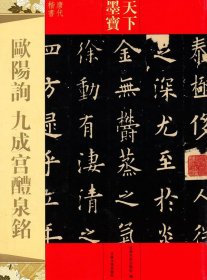 天下
墨寶
唐代
楷書
之深尤至於炎
金無鬱蒸之氣
徐動有淒清之
四方逮乎立年
歐陽詢 九成宮醴泉銘